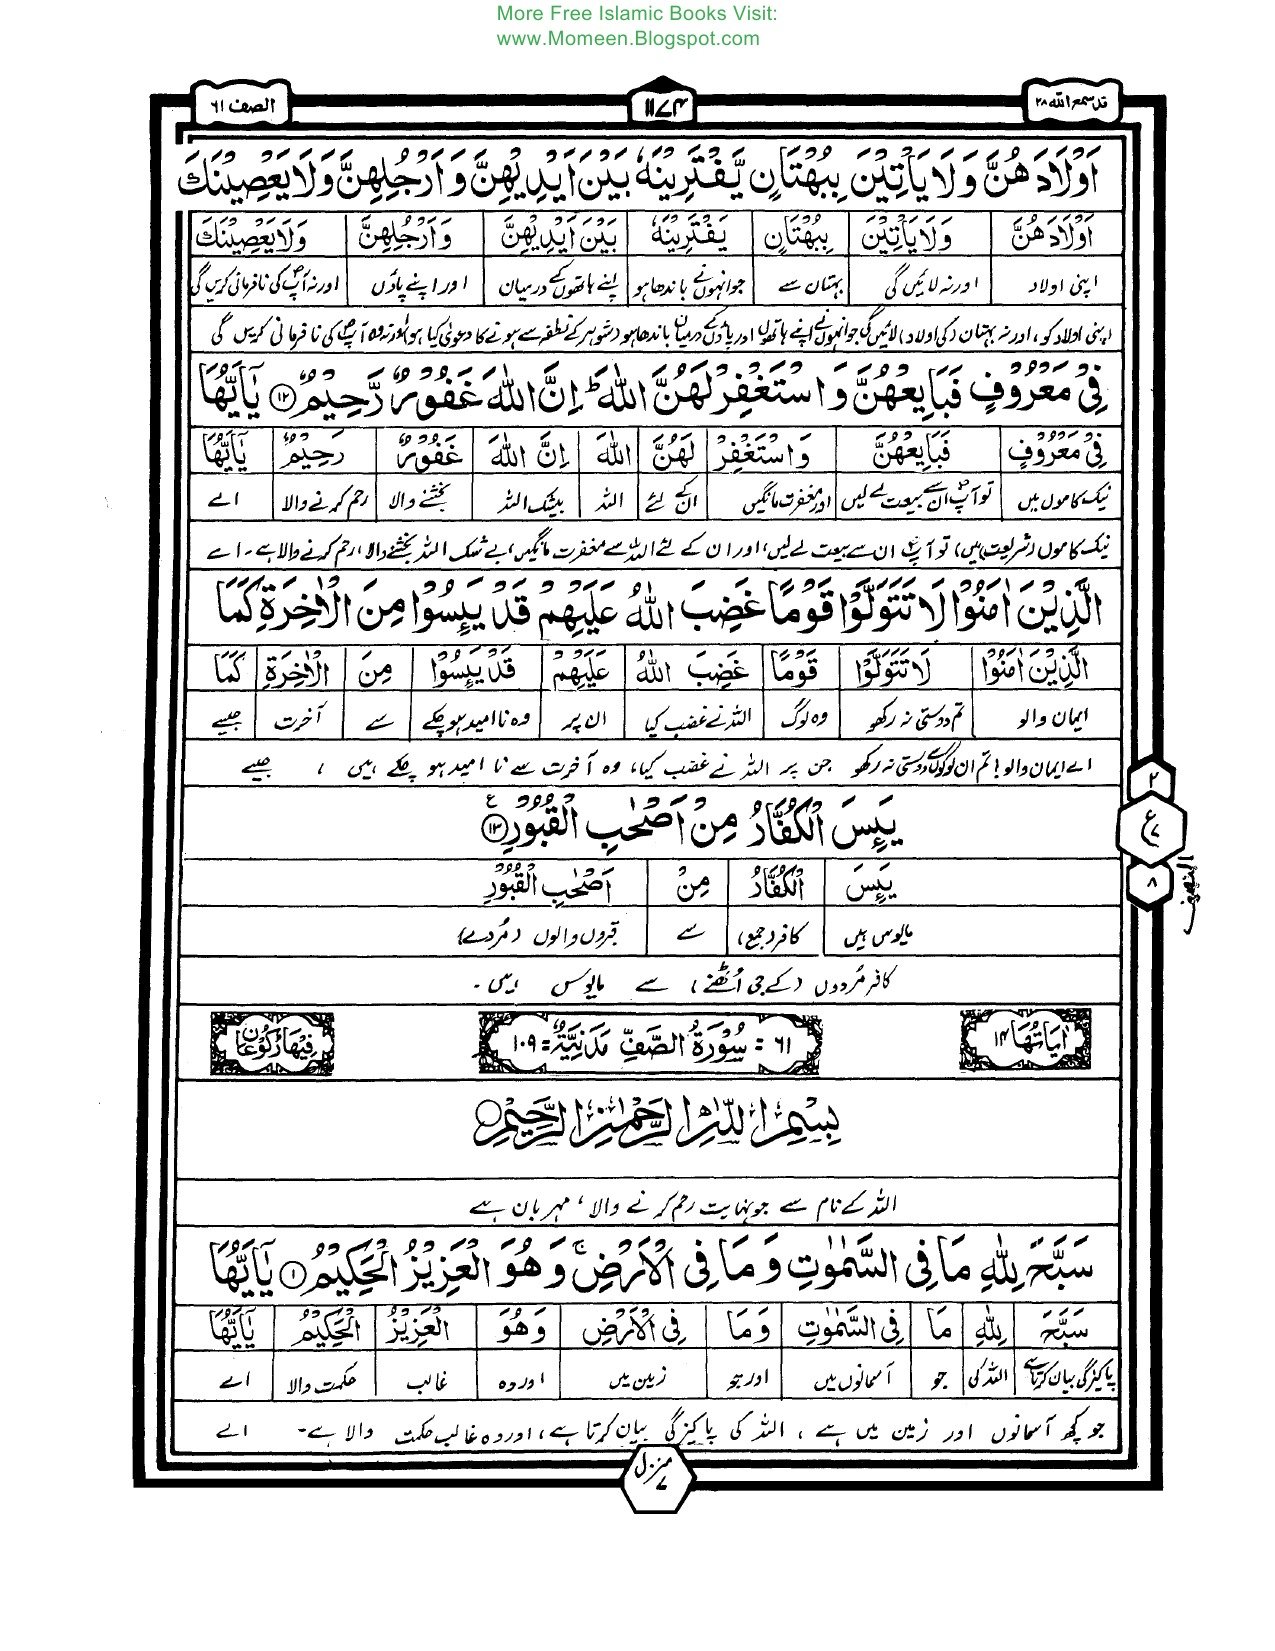 More Free Islamic Books Visit:
www.Momeen.Blogspot.com
قد سمع الله ۲۸
۱۱۷۴
الصف ۶۱
اَوْلَادَهُنَّ وَلَا يَاْتِيْنَ بِبُهْتَانٍ يَّفْتَرِيْنَهٗ بَيْنَ اَيْدِيْهِنَّ وَاَرْجُلِهِنَّ وَلَا يَعْصِيْنَكَ
اَوْلَادَهُنَّ وَلَا يَاْتِيْنَ بِبُهْتَانٍ يَفْتَرِيْنَهٗ بَيْنَ اَيْدِيْهِنَّ وَاَرْجُلِهِنَّ وَلَا يَعْصِيْنَكَ
اپنی اولاد اور نہ لائیں گی بہتان سے جو انہوں نے باندھا ہو اپنے ہاتھوں کے درمیان اور اپنے پاؤں اور نہ آپؐ کی نافرمانی کریں گی
اپنی اولاد کو، اور نہ بہتان (کی اولاد) لائیں گی جو انہوں نے اپنے ہاتھوں اور پاؤں کے درمیان باندھا ہو (شوہر کے نطفہ سے ہونے کا دعویٰ کیا ہو) اور نہ وہ آپؐ کی نافرمانی کریں گی
فِيْ مَعْرُوْفٍ فَبَايِعْهُنَّ وَاسْتَغْفِرْ لَهُنَّ اللّٰهَ ؕ اِنَّ اللّٰهَ غَفُوْرٌ رَّحِيْمٌ ۝۱۲ يٰۤاَيُّهَا
فِيْ مَعْرُوْفٍ فَبَايِعْهُنَّ وَاسْتَغْفِرْ لَهُنَّ اللّٰهَ اِنَّ اللّٰهَ غَفُوْرٌ رَحِيْمٌ يٰۤاَيُّهَا
نیک کاموں میں تو آپؐ ان سے بیعت لے لیں اور مغفرت مانگیں ان کے لئے اللہ بیشک اللہ بخشنے والا رحم کرنے والا اے
نیک کاموں (شریعت میں) تو آپؐ ان سے بیعت لے لیں، اور ان کے لئے اللہ سے مغفرت مانگیں، بے شک اللہ بخشنے والا، رحم کرنے والا ہے۔ اے
الَّذِيْنَ اٰمَنُوْا لَا تَتَوَلَّوْا قَوْمًا غَضِبَ اللّٰهُ عَلَيْهِمْ قَدْ يَئِسُوْا مِنَ الْاٰخِرَةِ كَمَا
الَّذِيْنَ اٰمَنُوْا لَا تَتَوَلَّوْا قَوْمًا غَضِبَ اللّٰهُ عَلَيْهِمْ قَدْ يَئِسُوْا مِنَ الْاٰخِرَةِ كَمَا
ایمان والو تم دوستی نہ رکھو وہ لوگ اللہ نے غضب کیا ان پر وہ نا امید ہو چکے سے آخرت جیسے
اے ایمان والو! تم ان لوگوں سے دوستی نہ رکھو جن پر اللہ نے غضب کیا، وہ آخرت سے نا امید ہو چکے ہیں ، جیسے
يَئِسَ الْكُفَّارُ مِنْ اَصْحٰبِ الْقُبُوْرِ ۝۱۳ ع
يَئِسَ الْكُفَّارُ مِنْ اَصْحٰبِ الْقُبُوْرِ
مایوس ہیں کافر (جمع) سے قبروں والوں (مُردے)
کافر مُردوں (کے جی اُٹھنے) سے مایوس ہیں ۔
۲
ع ۷
۸
النصف
اٰيَاتُهَا ۱۴
۶۱ = سُوْرَةُ الصَّفِّ مَدَنِيَّةٌ = ۱۰۹
فِيْهَا رُكُوْعَانِ
بِسْمِ اللّٰهِ الرَّحْمٰنِ الرَّحِيْمِ
اللہ کے نام سے جو نہایت رحم کرنے والا ، مہربان ہے
سَبَّحَ لِلّٰهِ مَا فِي السَّمٰوٰتِ وَمَا فِي الْاَرْضِ ۚ وَهُوَ الْعَزِيْزُ الْحَكِيْمُ ۝۱ يٰۤاَيُّهَا
سَبَّحَ لِلّٰهِ مَا فِي السَّمٰوٰتِ وَمَا فِي الْاَرْضِ وَهُوَ الْعَزِيْزُ الْحَكِيْمُ يٰۤاَيُّهَا
پاکیزگی بیان کرتا ہے اللہ کی جو آسمانوں میں اور جو زمین میں اور وہ غالب حکمت والا اے
جو کچھ آسمانوں اور زمین میں ہے ، اللہ کی پاکیزگی بیان کرتا ہے ، اور وہ غالب حکمت والا ہے۔ اے
منزل ۷